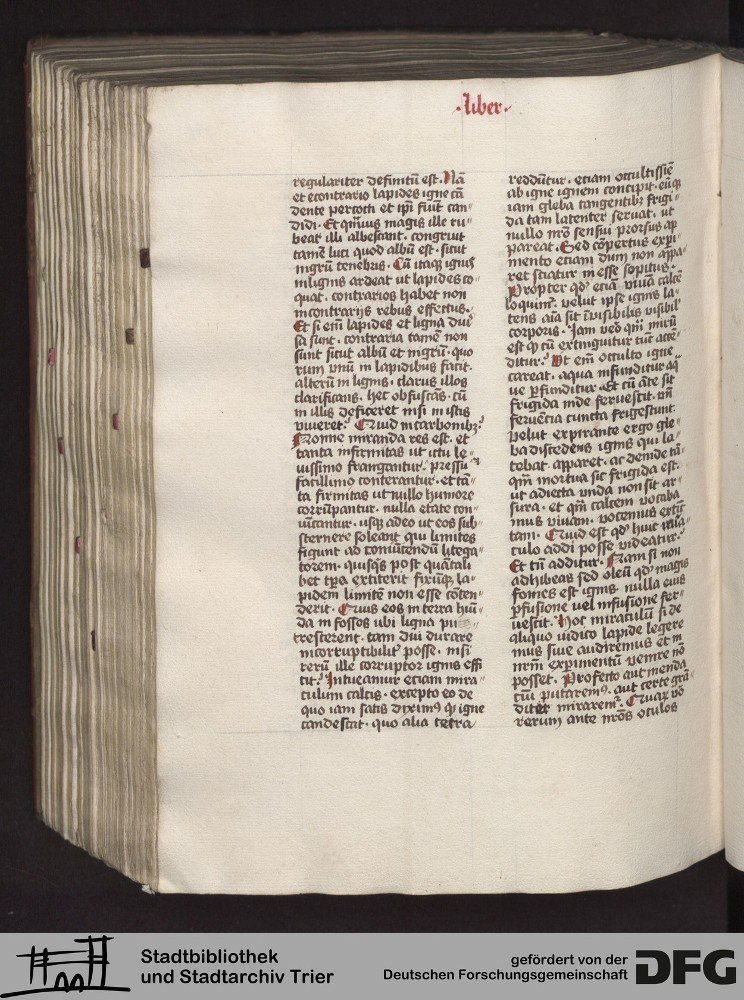 ·liber·
regulariter definitū est. Nā
et econtrario lapides igne cā
dente percocti et ip̄i fiūt can
didi. Et qm̄uis magis ille ru
beat illi albescant. congruit
tamē luci quod albū est. sicut
nigrū tenebris. Cū itaqꝫ ignis
in lignis ardeat ut lapides co
quat. contrarios habet non
in contrarijs rebus effectus.
Et si em̄ lapides et ligna diu
sa sunt. contraria tamē non
sunt sicut albū et nigrū. quo
rum vnū in lapidibus facit.
alterū in lignis. clarus illos
clarificans. hec obfuscās. cū
in illis deficeret nisi in istis
viueret. Quid in carbonibꝫ.
Nonne miranda res est. et
tanta infirmitas ut ictu le
uissimo frangantur. pressu
facillimo conterantur. et tā
ta firmitas ut nullo humore
corrūpantur. nulla etate con
uīcantur. usqꝫ adeo ut eos sub
sternere soleant qui limites
figunt ad conuincendū litiga
torem. quisqꝫ post quātali
bet tp̄a extiterit fixūqꝫ la
pidem limitē non esse cōten
derit. Quis eos in terra hūi
da in fossos ubi ligna pu
trescerent. tam diu durare
incorruptibilit̓ posse. nisi
rerū ille corruptor ignis effi
cit. Intueamur etiam mira
culum calcis. excepto eo de
quo iam satis diximꝰ qꝫ igne
candescat. quo alia tetra
reddūtur. etiam occultissīe
ab igne ignem concipit. eūqꝫ
iam gleba tangentibꝫ frigi
da tam latenter seruat. ut
nullo mō sensui prorsus ap
pareat. Sed cōpertus expi
mento etiam dum non appa
ret sciatur inesse sopitus.
Propter qd̓ eciā viuā calcē
loquim̓. velut ipse ignis la
tens aīa sit īvisibilis visibil̓
corporis. Iam veō qm̄ mirū
est qꝫ cū extinguitur tūc accē
ditur. Ut em̄ occulto igne
careat. aqua infunditur aq̄
ue ꝑfunditur. Et cū āte sit
frigida inde feruescit. vn̄
feruētia cuncta frigescunt.
Velut expirante ergo gle
ba discedens ignis qui la
tebat apparet. ac deinde tā
qm̄ mortua sic frigida est.
ut adiecta vnda non sit ar
sura. et qm̄ calcem vocaba
mus viuam. vocemus extīc
tam. Quid est qd̓ huic mira
culo addi posse videatur.
Et tn̄ additur. Nam si non
adhibeas sed oleū qd̓ magis
fomes est ignis. nulla eius
ꝑfusione vel infusione fer
uescit. Hoc miraculū si de
aliquo indico lapide legere
mus siue audiremus et in
nr̄m experimentū venire nō
posset. Profecto aut menda
ciū putaremꝰ. aut certe grā
diter miraremr̓. Quarꝫ vō
rerum ante nr̄os oculos
Stadtbibliothek
und Stadtarchiv Trier
gefördert von der
Deutschen Forschungsgemeinschaft
DFG